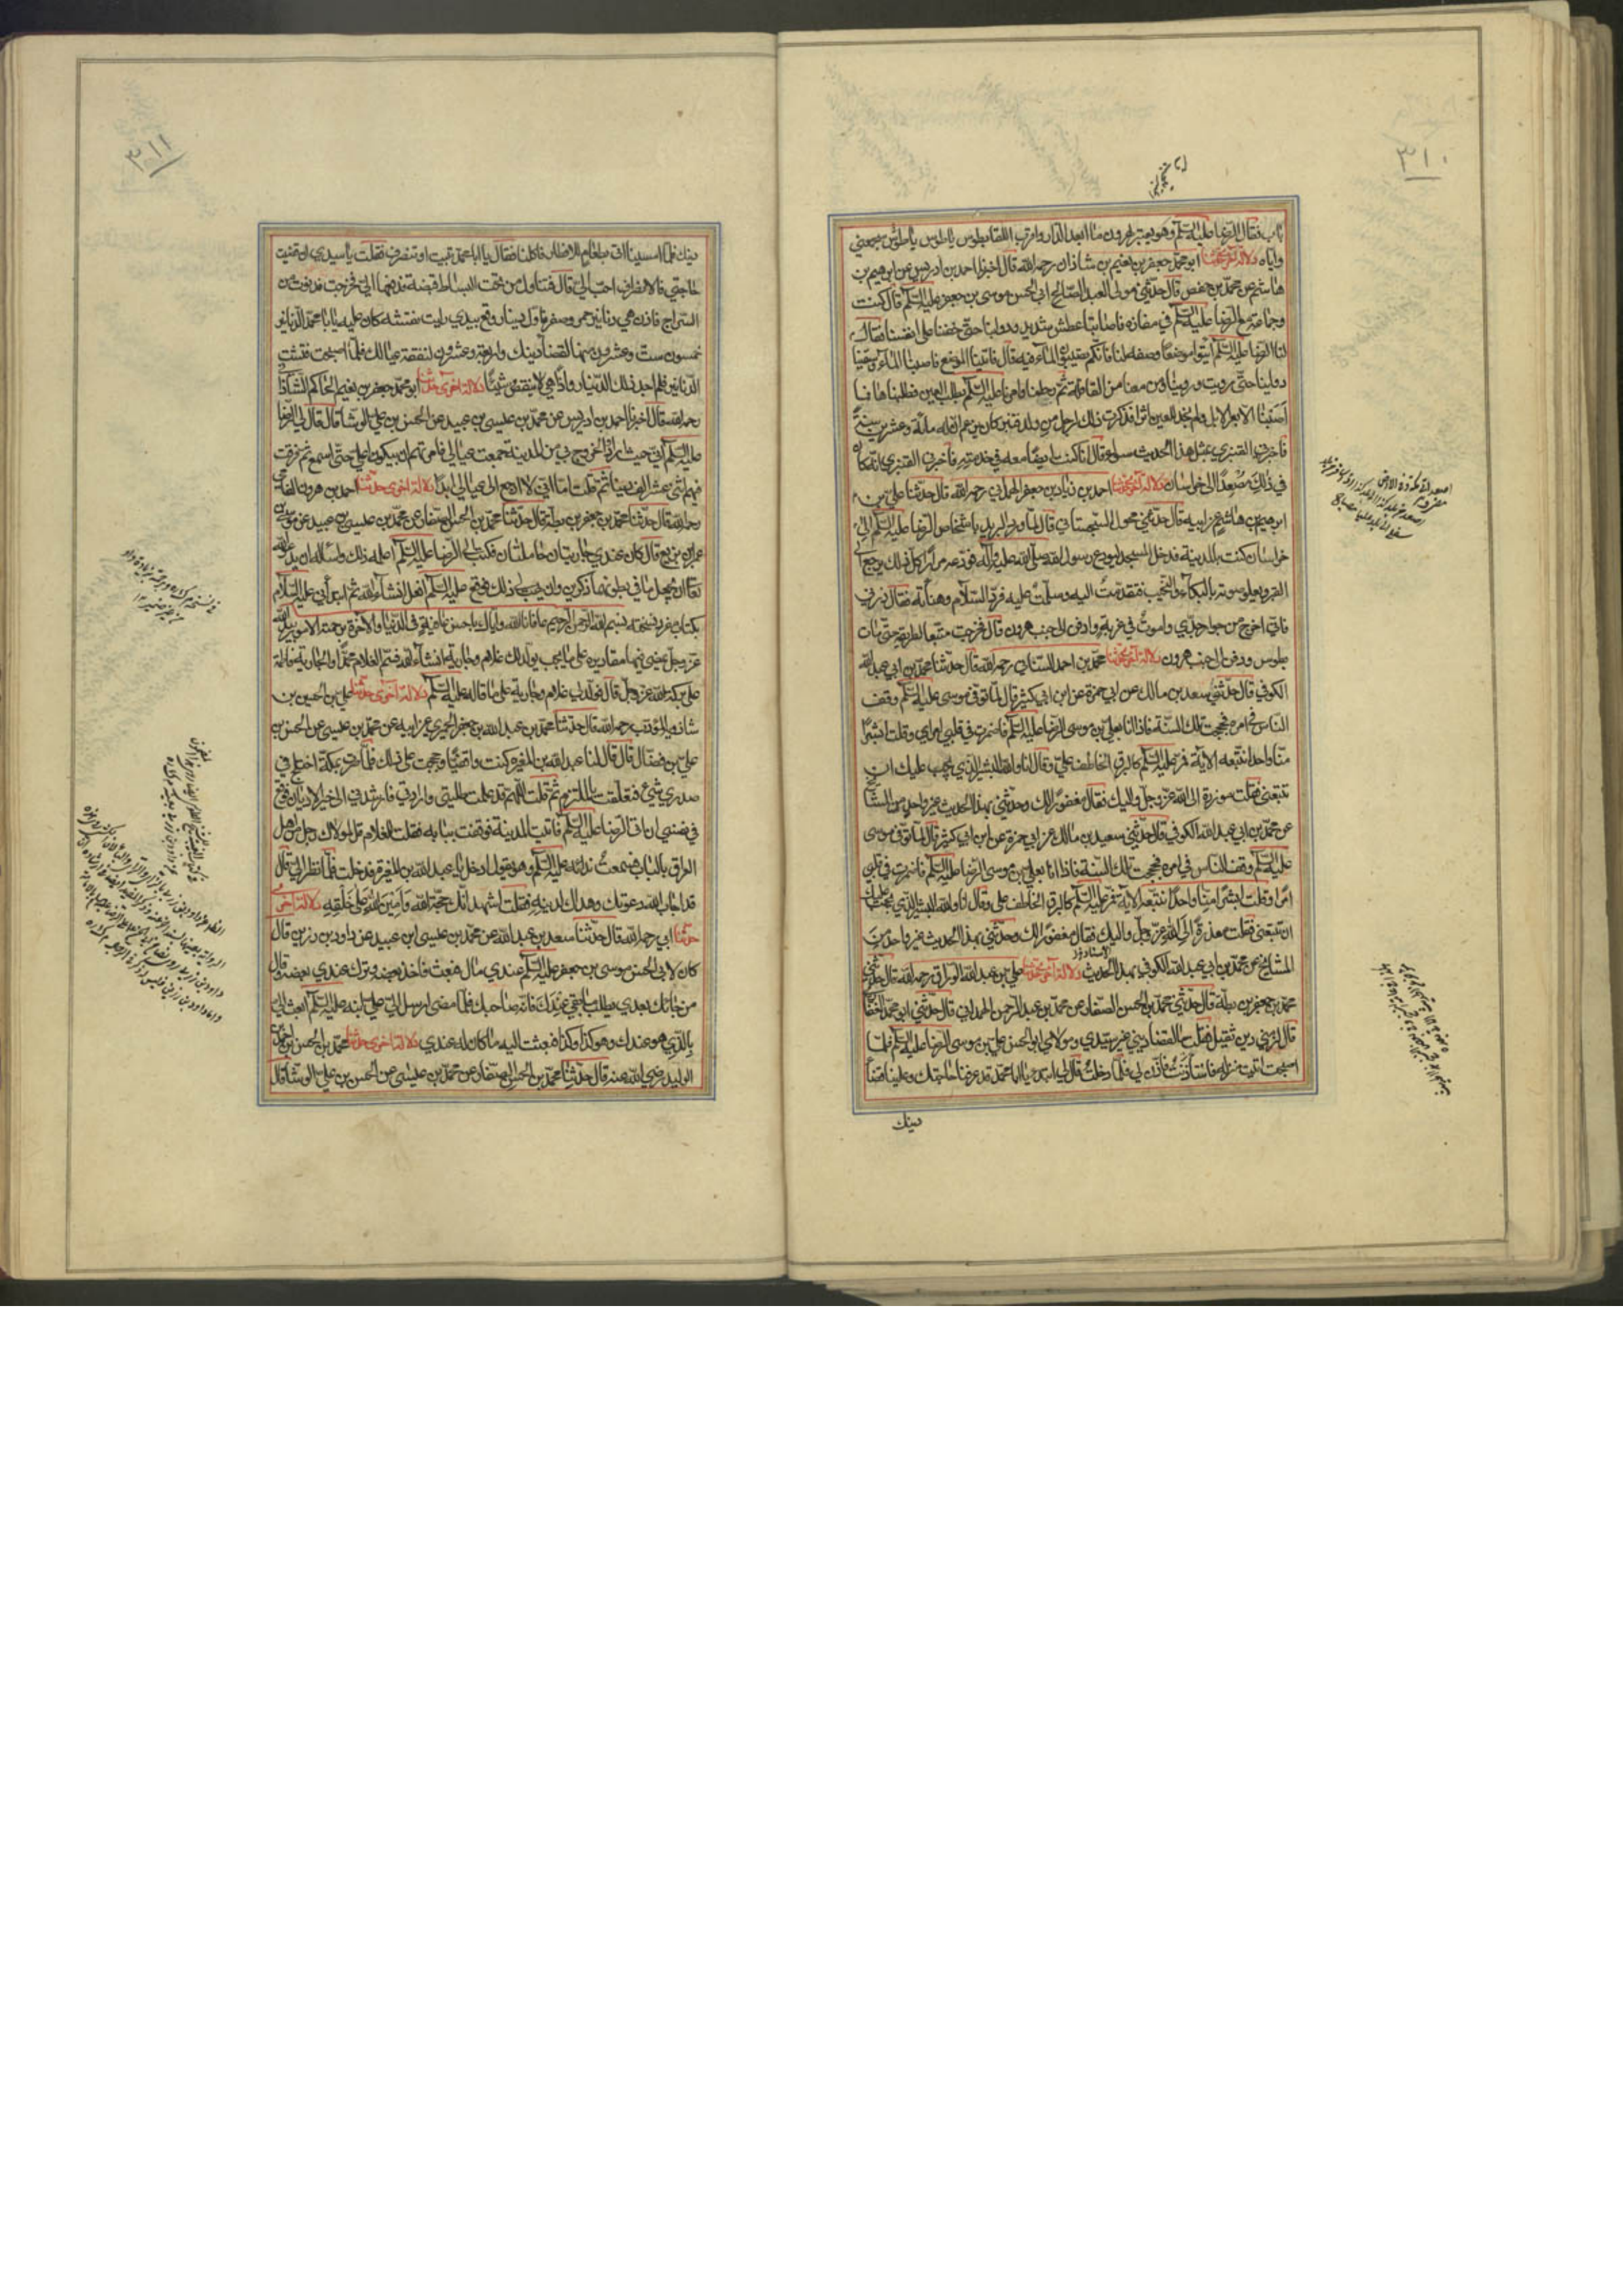 ٣١٠
باب فقال الرضا عليه السلم وهو يعتبر لهرون ما ابعد الدار واقرب اللقا بطوس يا طوس يا طوس ستجمعني
واياه دلالة اخرى حدثنا ابو محمد جعفر بن نعيم بن شاذان رحمه الله قال اخبرنا احمد بن ادريس عن ابرهيم بن
هاشم عن محمد بن حفص قال حدثني مولى العبد الصالح ابي الحسن موسى بن جعفر عليه السلم قال كنت
وجماعة مع الرضا عليه السلم في مفازة فاصابنا عطش شديد ودوابنا حتى خفنا على انفسنا فقال
لنا الرضا عليه السلم ايتوا موضعا وصفه لنا فانكم تصيبون الماء فيه قال فاتينا الموضع فاصبنا الماء وسقينا
دوابنا حتى رويت وروينا ومن معنا من القافلة ثم رحلنا فامرنا عليه السلم بطلب العين فطلبناها فما
اصبنا الا بعر الابل ولم نجد للعين اثرا فذكرت ذلك لرجل من ولد قنبر كان يزعم ان له مائة وعشرين سنة
فاخبرني القنبري بمثل هذا الحديث سواء قال انا كنت ايضا معه في خدمته فاخبرني القنبري انه كان
في ذلك مصعدا الى خراسان دلالة اخرى حدثنا احمد بن زياد بن جعفر الهمداني رحمه الله قال حدثنا علي بن
ابرهيم بن هاشم عن ابيه قال حدثني محول السجستاني قال لما ورد البريد باشخاص الرضا عليه السلم الى
خراسان كنت بالمدينة فدخل المسجد ليودع رسول الله صلى الله عليه وآله فودعه مرارا كل ذلك يرجع الى
القبر ويعلو صوته بالبكاء والنحيب فتقدمت اليه وسلمت عليه فرد السلام وهنأته فقال ذرني
فاني اخرج من جوار جدي واموت في غربة وادفن الى جنب هرون قال فخرجت متبعا لطريقه حتى مات
بطوس ودفن الى جنب هرون دلالة اخرى حدثنا محمد بن احمد السناني رحمه الله قال حدثنا محمد بن ابي عبد الله
الكوفي قال حدثني سعد بن مالك عن ابي حمزة عن ابن ابي كثير قال لما توفي موسى عليه السلم وقف
الناس في امره فحججت تلك السنة فاذا انا بعلي بن موسى الرضا عليه السلم فاضمرت في قلبي امرا وقلت ابشرا
منا واحدا نتبعه الآية فمر عليه السلم كالبرق الخاطف علي وقال انا والله البشر الذي يجب عليك ان
تتبعني فقلت معذرة الى الله عز وجل واليك فقال مغفور لك وحدثني بهذا الحديث غير واحد من المشايخ
عن محمد بن ابي عبد الله الكوفي قال حدثني سعيد بن مالك عن ابي حمزة عن ابن ابي كثير قال لما توفي موسى
عليه السلم وقف الناس في امره فحججت تلك السنة فاذا انا بعلي بن موسى الرضا عليه السلم فاضمرت في قلبي
امرا وقلت ابشرا منا واحدا نتبعه الآية فمر عليه السلم كالبرق الخاطف علي وقال انا والله البشر الذي يجب عليك
ان تتبعني فقلت معذرة الى الله عز وجل واليك فقال مغفور لك وحدثني بهذا الحديث غير واحد من
المشايخ عن محمد بن ابي عبد الله الكوفي بهذا الحديث دلالة اخرى حدثنا علي بن عبد الله الوراق رحمه الله قال حدثني
محمد بن جعفر بن بطة قال حدثني محمد بن الحسن الصفار عن محمد بن عبد الرحمن الهمداني قال حدثني ابو محمد الغفاري
قال لزمني دين ثقيل فقلت ما لقضاء ديني غير سيدي ومولاي ابو الحسن علي بن موسى الرضا عليه السلم فلما
اصبحت اتيت منزله فاستأذنت فاذن لي فلما دخلت قال لي ابتداء يا ابا محمد قد عرفنا حاجتك وعلينا قضا
دينك
٣١١
دينك فلما امسينا اتى بطعام للافطار فاكلنا فقال يا ابا محمد تبيت او تنصرف فقلت يا سيدي ان قضيت
حاجتي فالانصراف احب الي قال فتناول من تحت البساط قبضة فدفعها الي فخرجت فدنوت من
السراج فاذن هي دنانير حمر وصفر فاول دينار وقع بيدي رايت نقشه كان عليه يا ابا محمد الدنانير
خمسون ستة وعشرون منها لقضاء دينك واربعة وعشرون لنفقة عيالك فلما اصبحت فتشت
الدنانير فلم اجد ذلك الدينار واذا هي لا ينقص شيئا دلالة اخرى حدثنا ابو محمد جعفر بن نعيم الحاكم الشاذاني
رحمه الله قال اخبرنا احمد بن ادريس عن محمد بن عيسى بن عبيد عن الحسن بن علي الوشا قال قال لي الرضا
عليه السلم اني حيث ارادوا الخروج بي من المدينة جمعت عيالي فامرتهم ان يبكوا علي حتى اسمع ثم فرقت
فيهم اثني عشر الف دينار ثم قلت اما اني لا ارجع الى عيالي ابدا دلالة اخرى حدثنا احمد بن هرون الفامي
رحمه الله قال حدثنا محمد بن جعفر بن بطة قال حدثنا محمد بن الحسن الصفار عن محمد بن عيسى بن عبيد عن موسى بن
عمر بن بزيع قال كان عندي جاريتان حاملتان فكتبت الى الرضا عليه السلم اعلمه ذلك واسأله ان يدعو الله
تعالى ان يجعل ما في بطونهما ذكرين وان يهب لي ذلك فوقع عليه السلم افعل انشاء الله ثم ابتدأني عليه السلام
بكتاب مفرد نسخته بسم الله الرحمن الرحيم عافانا الله واياك باحسن عافية في الدنيا والآخرة برحمته الامور بيد الله
عز وجل يمضي فيها مقاديره على ما يحب يولد لك غلام وجارية انشاء الله فسم الغلام محمدا والجارية فاطمة
على بركة الله عز وجل قال فولد لي غلام وجارية على ما قاله عليه السلم دلالة اخرى حدثنا علي بن الحسين بن
شاذويه المؤدب رحمه الله قال حدثنا محمد بن عبد الله بن جعفر الحميري عن ابيه عن محمد بن عيسى عن الحسن بن
علي بن فضال قال قال لنا عبد الله بن المغيرة كنت واقفيا وحججت على ذلك فلما صرت بمكة اختلج في
صدري شيء فتعلقت بالملتزم ثم قلت اللهم قد علمت طلبتي وارادتي فارشدني الى خير الاديان فوقع
في نفسي ان اتى الرضا عليه السلم فاتيت المدينة فوقفت ببابه فقلت للغلام قل لمولاك رجل من اهل
العراق بالباب فسمعت نداءه عليه السلم وهو يقول ادخل يا عبد الله بن المغيرة فدخلت فلما نظر الي قال
قد اجاب الله دعوتك وهداك لدينه فقلت اشهد انك حجة الله وامين الله على خلقه دلالة اخرى
حدثنا ابي رحمه الله قال حدثنا سعد بن عبد الله عن محمد بن عيسى ابن عبيد عن داود بن رزين قال
كان لابي الحسن موسى بن جعفر عليه السلم عندي مال فبعث فاخذ بعضه وترك عندي بعضه وقال
من جاءك بعدي يطلب ما بقي عندك فانه صاحبك فلما مضى ارسل الي علي ابنه عليه السلم ابعث الي
بالذي هو عندك وهو كذا وكذا فبعثت اليه ما كان له عندي دلالة اخرى حدثنا محمد بن الحسن بن احمد بن
الوليد رضي الله عنه قال حدثنا محمد بن الحسن الصفار عن محمد بن عيسى عن الحسن بن علي الوشا قال